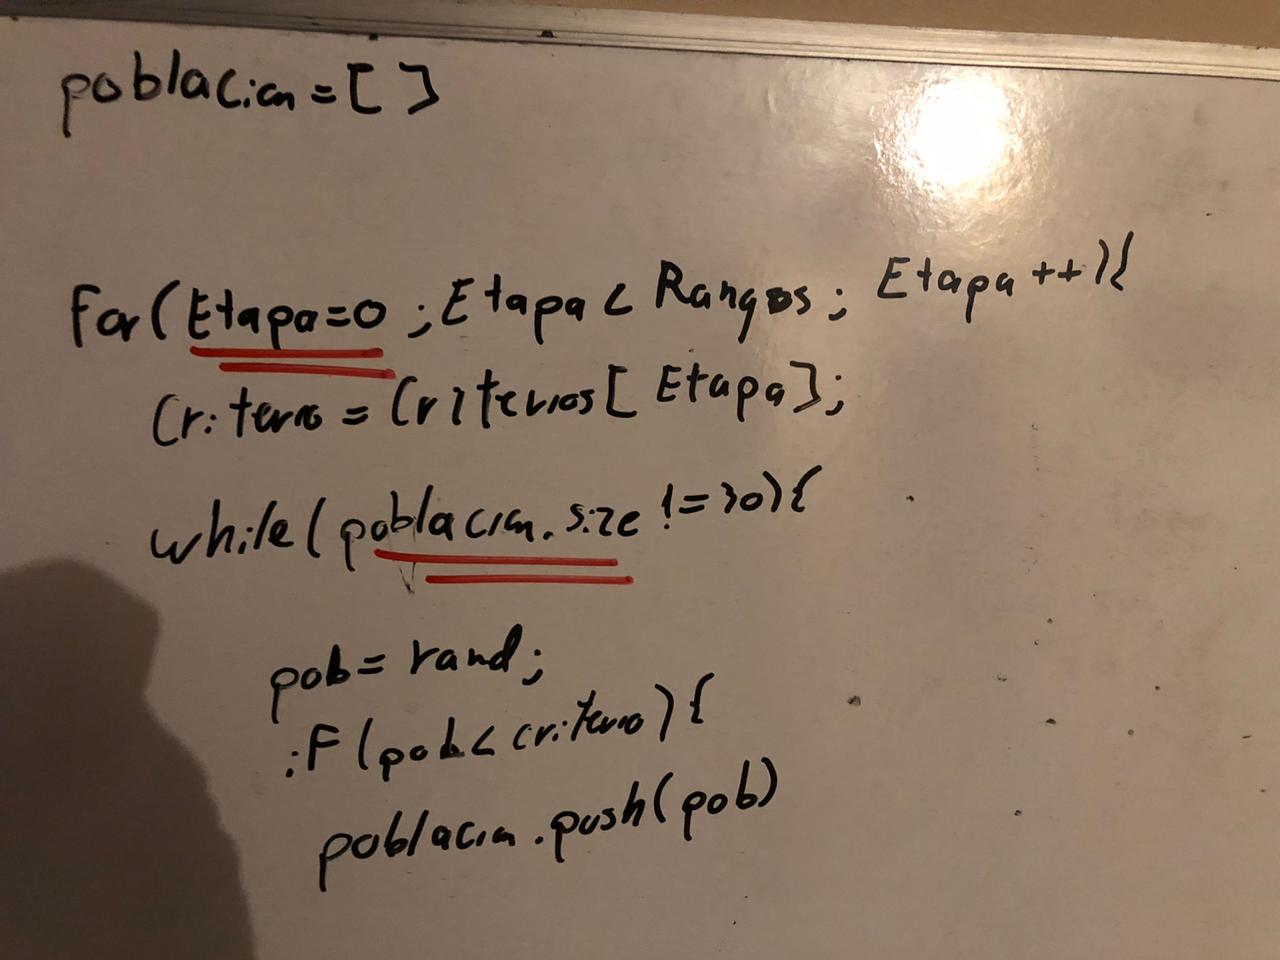 poblacion = [ ]
For( Etapa=0 ; Etapa < Rangos ; Etapa ++ ){
Criterio = Criterios [ Etapa ];
while ( poblacion. size != 30 ) {
pob = rand;
iF ( pob < criterio ) {
poblacion .push( pob )